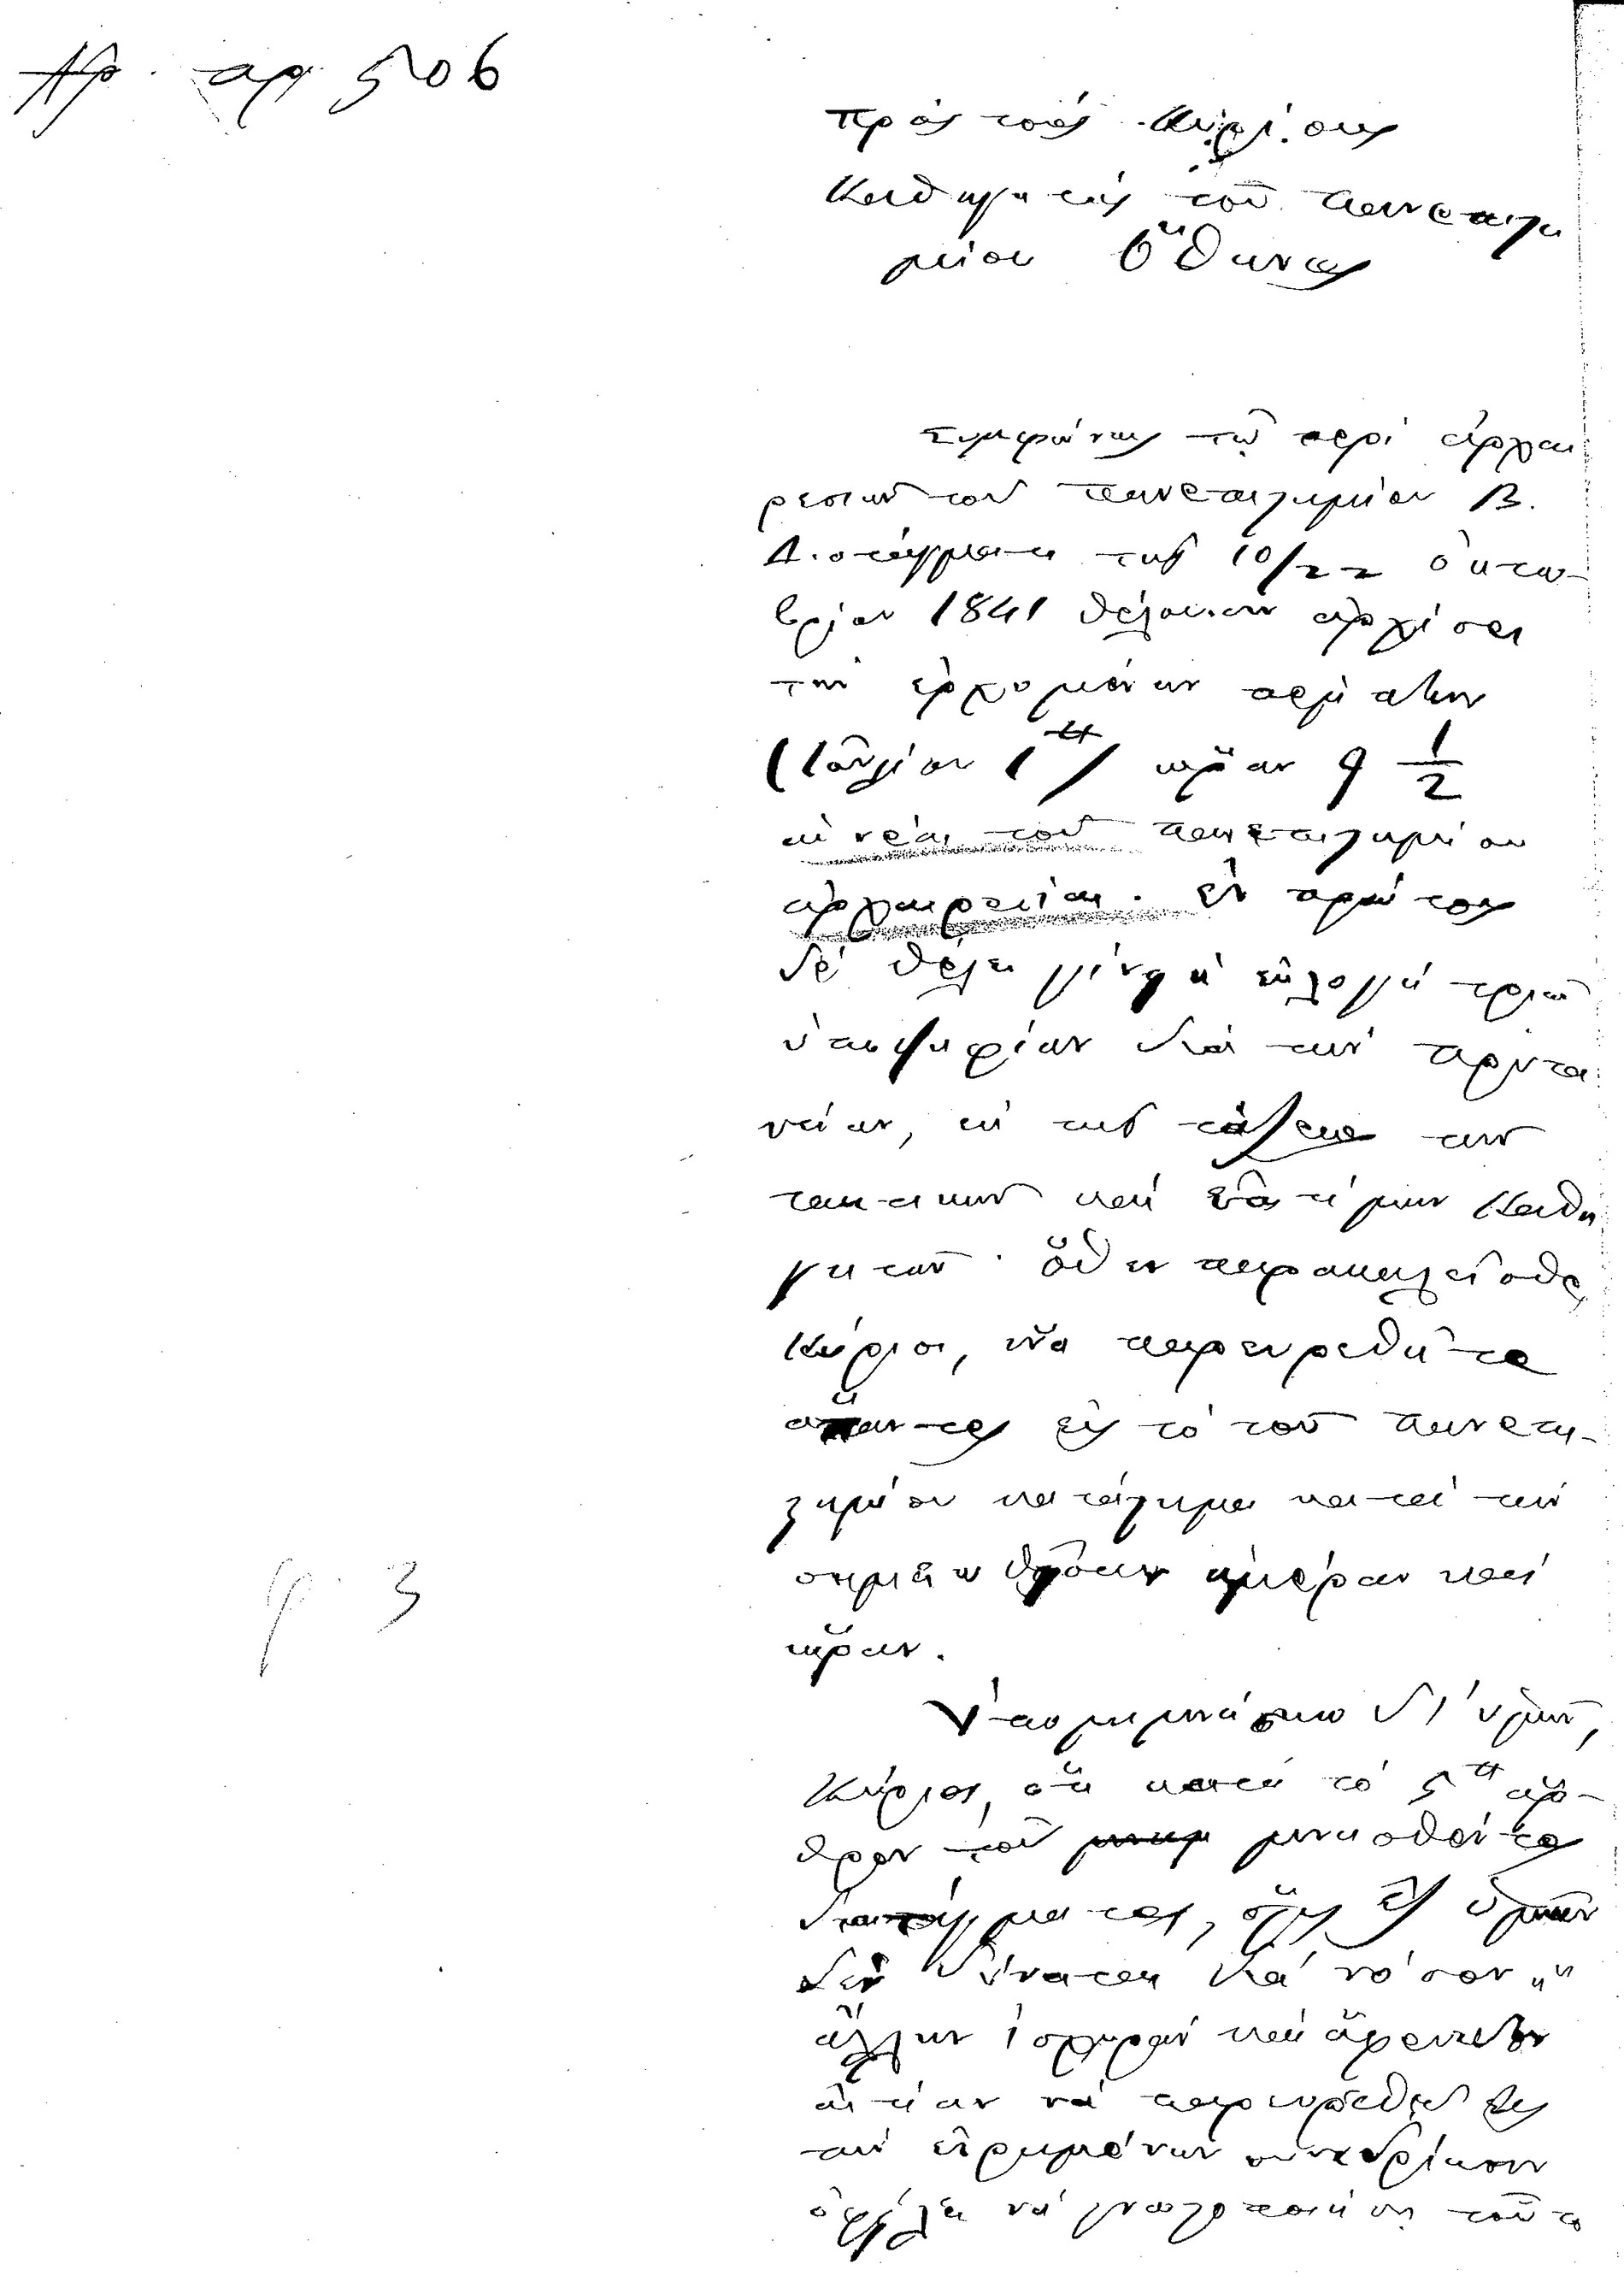 Ἀρ. πρ. 506
Πρὸς τοὺς Κυρίους
Καθηγητὰς τοῦ Πανεπιστη
μίου Ὄθωνος
Συμφώνως τῷ περὶ ἀρχαι
ρεσιῶν τοῦ πανεπιστημίου Β.
Διατάγματι τῆς 10/22 Ὀκτω-
βρίου 1841 θέλουσιν ἀρχίσει
τὴν ἐρχομένην πέμπτην
(Ἰουλίου 1 ὥραν 9 1/2
αἱ νέαι τοῦ πανεπιστημίου
ἀρχαιρεσίαι. ἐν πρώτοις
δὲ θέλει γίνῃ ἡ ἐκλογὴ τριῶν
ὑποψηφίων διὰ τὴν πρυτα
νείαν, ἐκ τῆς τάξεως τῶν
τακτικῶν καὶ ἐπιτίμων Καθη
γητῶν. ὅθεν παρακαλεῖσθε,
Κύριοι, ἵνα παρευρεθῆτε
ἅπαντες εἰς τὸ τοῦ Πανεπι-
στημίου κατάστημα κατὰ τὴν
σημειωθεῖσαν ἡμέραν καὶ
ὥραν.
φ. 3
Ὑπομιμνήσκω δι' ὑμῶν,
Κύριοι, ὅτι κατὰ τὸ 5 ἄρ-
θρον τοῦ μνησθέντος
διατάγματος, ὅστις ἐξ ὑμῶν
δὲν δύναται διὰ νόσον ἢ
ἄλλην ἰσχυρὰν καὶ ἄφευκτον
αἰτίαν νὰ παρευρεθῇ εἰς
τὴν εἰρημένην συνεδρίασιν
ὀφείλει νὰ γνωστοποιήσῃ τοῦτο